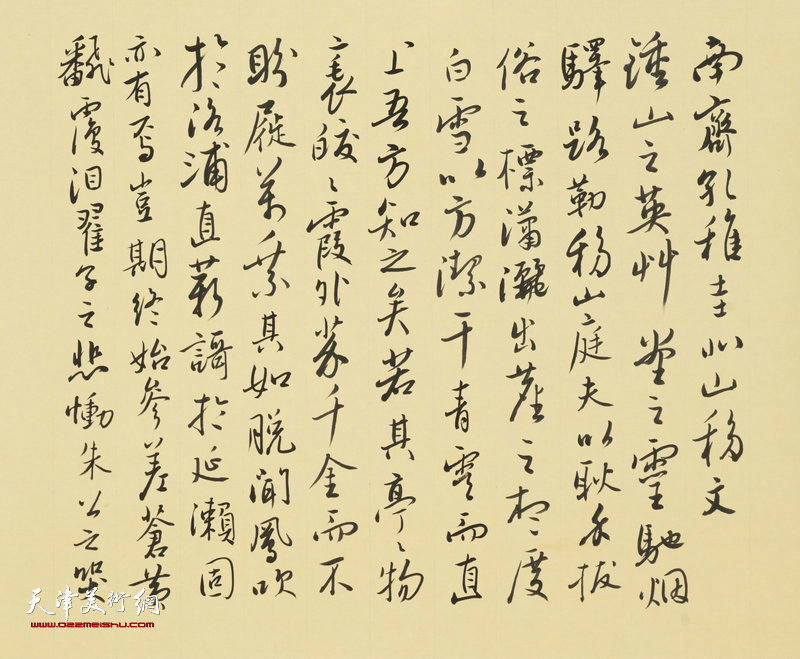 南齊孔稚圭北山移文
鍾山之英艸堂之靈馳烟
驛路勒移山庭夫以耿介拔
俗之標瀟灑出塵之想度
白雪以方潔干青雲而直
上吾方知之矣若其亭々物
表皎々霞外芥千金而不
盼屣萬乘其如脫聞鳳吹
於洛浦直薪謌於延瀨固
亦有焉豈期終始參差蒼黄
飜覆泪翟子之悲慟朱公之哭
天津美術網
www.022meishu.com